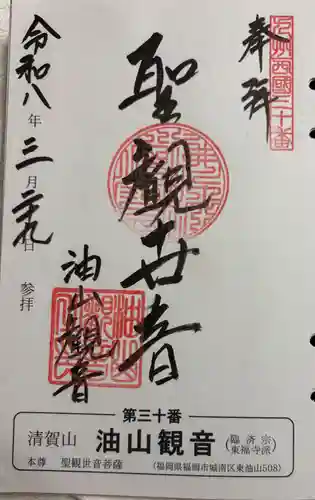 奉拝
九州西國三十番
聖観世音
油山観音
令和八年三月二十九日 参拝
第三十番
清賀山 油山観音 (臨済宗 東福寺派)
本尊 聖観世音菩薩 (福岡県福岡市城南区東油山508)